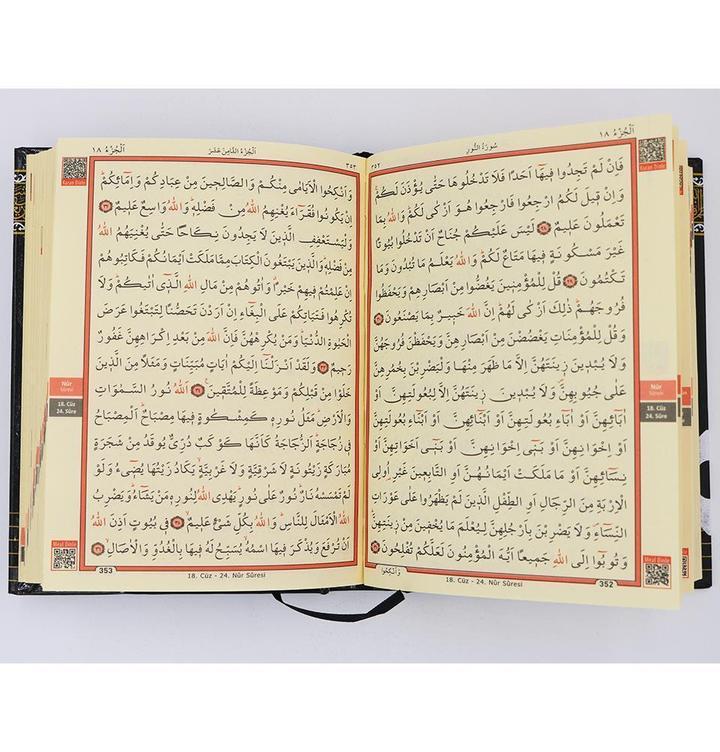 اَلْجُزْءُ ١٨
سُورَةُ النُّورِ
٣٥٢
Kuran Dinle
فَاِنْ لَمْ تَجِدُوا فٖيهَٓا اَحَدًا فَلَا تَدْخُلُوهَا حَتّٰى يُؤْذَنَ لَكُمْ
وَاِنْ قٖيلَ لَكُمُ ارْجِعُوا فَارْجِعُوا هُوَ اَزْكٰى لَكُمْ وَاللّٰهُ بِمَا
تَعْمَلُونَ عَلٖيمٌ ﴿٢٨﴾ لَيْسَ عَلَيْكُمْ جُنَاحٌ اَنْ تَدْخُلُوا بُيُوتًا
غَيْرَ مَسْكُونَةٍ فٖيهَا مَتَاعٌ لَكُمْ وَاللّٰهُ يَعْلَمُ مَا تُبْدُونَ وَمَا
تَكْتُمُونَ ﴿٢٩﴾ قُلْ لِلْمُؤْمِنٖينَ يَغُضُّوا مِنْ اَبْصَارِهِمْ وَيَحْفَظُوا
فُرُوجَهُمْ ذٰلِكَ اَزْكٰى لَهُمْ اِنَّ اللّٰهَ خَبٖيرٌ بِمَا يَصْنَعُونَ ﴿٣٠﴾
وَقُلْ لِلْمُؤْمِنَاتِ يَغْضُضْنَ مِنْ اَبْصَارِهِنَّ وَيَحْفَظْنَ فُرُوجَهُنَّ
وَلَا يُبْدٖينَ زٖينَتَهُنَّ اِلَّا مَا ظَهَرَ مِنْهَا وَلْيَضْرِبْنَ بِخُمُرِهِنَّ
عَلٰى جُيُوبِهِنَّ وَلَا يُبْدٖينَ زٖينَتَهُنَّ اِلَّا لِبُعُولَتِهِنَّ اَوْ
اٰبَٓائِهِنَّ اَوْ اٰبَٓاءِ بُعُولَتِهِنَّ اَوْ اَبْنَٓائِهِنَّ اَوْ اَبْنَٓاءِ بُعُولَتِهِنَّ
اَوْ اِخْوَانِهِنَّ اَوْ بَنٖٓى اِخْوَانِهِنَّ اَوْ بَنٖٓى اَخَوَاتِهِنَّ اَوْ
نِسَٓائِهِنَّ اَوْ مَا مَلَكَتْ اَيْمَانُهُنَّ اَوِ التَّابِعٖينَ غَيْرِ اُولِى
الْاِرْبَةِ مِنَ الرِّجَالِ اَوِ الطِّفْلِ الَّذٖينَ لَمْ يَظْهَرُوا عَلٰى عَوْرَاتِ
النِّسَٓاءِ وَلَا يَضْرِبْنَ بِاَرْجُلِهِنَّ لِيُعْلَمَ مَا يُخْفٖينَ مِنْ زٖينَتِهِنَّ
وَتُوبُٓوا اِلَى اللّٰهِ جَمٖيعًا اَيُّهَ الْمُؤْمِنُونَ لَعَلَّكُمْ تُفْلِحُونَ ﴿٣١﴾
وَاَنْكِحُوا
18. Cüz - 24. Nûr Sûresi
352
Nûr
Sûresi
18. Cüz
24. Sûre
اَلْجُزْءُ ١٨
اَلْجُزْءُ الثَّامِنَ عَشَرَ
٣٥٣
Kuran Dinle
وَاَنْكِحُوا الْاَيَامٰى مِنْكُمْ وَالصَّالِحٖينَ مِنْ عِبَادِكُمْ وَاِمَٓائِكُمْ
اِنْ يَكُونُوا فُقَرَٓاءَ يُغْنِهِمُ اللّٰهُ مِنْ فَضْلِهٖ وَاللّٰهُ وَاسِعٌ عَلٖيمٌ ﴿٣٢﴾
وَلْيَسْتَعْفِفِ الَّذٖينَ لَا يَجِدُونَ نِكَاحًا حَتّٰى يُغْنِيَهُمُ اللّٰهُ
مِنْ فَضْلِهٖ وَالَّذٖينَ يَبْتَغُونَ الْكِتَابَ مِمَّا مَلَكَتْ اَيْمَانُكُمْ فَكَاتِبُوهُمْ
اِنْ عَلِمْتُمْ فٖيهِمْ خَيْرًا وَاٰتُوهُمْ مِنْ مَالِ اللّٰهِ الَّذٖٓى اٰتٰيكُمْ وَلَا
تُكْرِهُوا فَتَيَاتِكُمْ عَلَى الْبِغَٓاءِ اِنْ اَرَدْنَ تَحَصُّنًا لِتَبْتَغُوا عَرَضَ
الْحَيٰوةِ الدُّنْيَا وَمَنْ يُكْرِهْهُنَّ فَاِنَّ اللّٰهَ مِنْ بَعْدِ اِكْرَاهِهِنَّ غَفُورٌ
رَحٖيمٌ ﴿٣٣﴾ وَلَقَدْ اَنْزَلْنَٓا اِلَيْكُمْ اٰيَاتٍ مُبَيِّنَاتٍ وَمَثَلًا مِنَ الَّذٖينَ
خَلَوْا مِنْ قَبْلِكُمْ وَمَوْعِظَةً لِلْمُتَّقٖينَ ﴿٣٤﴾ اَللّٰهُ نُورُ السَّمٰوَاتِ
وَالْاَرْضِ مَثَلُ نُورِهٖ كَمِشْكٰوةٍ فٖيهَا مِصْبَاحٌ اَلْمِصْبَاحُ
فٖى زُجَاجَةٍ اَلزُّجَاجَةُ كَاَنَّهَا كَوْكَبٌ دُرِّىٌّ يُوقَدُ مِنْ شَجَرَةٍ
مُبَارَكَةٍ زَيْتُونَةٍ لَا شَرْقِيَّةٍ وَلَا غَرْبِيَّةٍ يَكَادُ زَيْتُهَا يُضٖٓىءُ وَلَوْ
لَمْ تَمْسَسْهُ نَارٌ نُورٌ عَلٰى نُورٍ يَهْدِى اللّٰهُ لِنُورِهٖ مَنْ يَشَٓاءُ وَيَضْرِبُ
اللّٰهُ الْاَمْثَالَ لِلنَّاسِ وَاللّٰهُ بِكُلِّ شَىْءٍ عَلٖيمٌ ﴿٣٥﴾ فٖى بُيُوتٍ اَذِنَ اللّٰهُ
اَنْ تُرْفَعَ وَيُذْكَرَ فٖيهَا اسْمُهُ يُسَبِّحُ لَهُ فٖيهَا بِالْغُدُوِّ وَالْاٰصَالِ ﴿٣٦﴾
353
18. Cüz - 24. Nûr Sûresi
Nûr
Sûresi
18. Cüz
24. Sûre
Meal Dinle